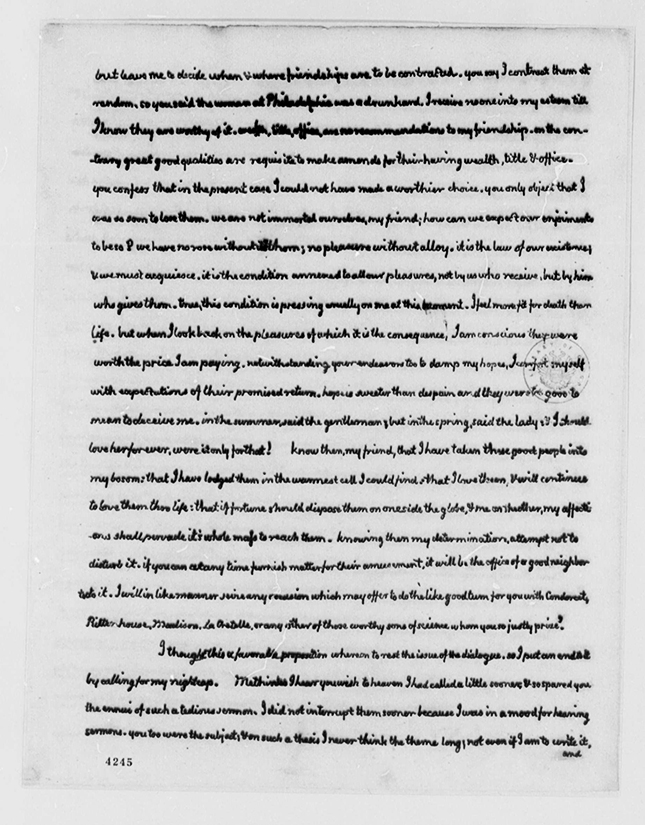 but leave me to decide when & where friendships are to be contracted. you say I contract them at
random. so you said the woman at Philadelphia was a drunkard. I receive no one into my esteem till
I know they are worthy of it. wealth, title, office, are no recommendations to my friendship. on the con-
-trary great good qualities are requisite to make amends for their having wealth, title & office.
you confess that in the present case I could not have made a worthier choice. you only object that I
was so soon to lose them. we are not immortal ourselves, my friend; how can we expect our enjoiments
to be so? we have no rose without it's thorn; no pleasure without alloy. it is the law of our existence;
& we must acquiesce. it is the condition annexed to all our pleasures, not by us who receive, but by him
who gives them. true, this condition is pressing cruelly on me at this moment. I feel more fit for death than
life. but when I look back on the pleasures of which it is the consequence, I am conscious they were
worth the price I am paying. notwithstanding your endeavors too to damp my hopes, I comfort myself
with expectations of their promised return. hope is sweeter than despair, and they were too good to
mean to deceive me. in the summer, said the gentleman; but in the spring, said the lady: & I should
love her forever, were it only for that! know then, my friend, that I have taken these good people into
my bosom: that I have lodged them in the warmest cell I could find: that I love them, & will continue
to love them thro life: that if fortune should dispose them on one side the globe, & me on the other, my affecti-
-ons shall pervade it's whole mass to reach them. knowing then my determination, attempt not to
disturb it. if you can at any time furnish matter for their amusement, it will be the office of a good neighbor
to do it. I will in like manner seize any occasion which may offer to do the like good turn for you with Condorcet,
Rittenhouse, Madison, La Cretelle, or any other of those worthy sons of science whom you so justly prize.
I thought this a favorable proposition whereon to rest the issue of the dialogue. so I put an end to it
by calling for my nightcap. Methinks I hear you wish to heaven I had called a little sooner, & so spared you
the ennui of such a tedious sermon. I did not interrupt them sooner because I was in a mood for hearing
sermons. you too were the subject; & on such a thesis I never think the theme long; not even if I am to write it,
and
4245